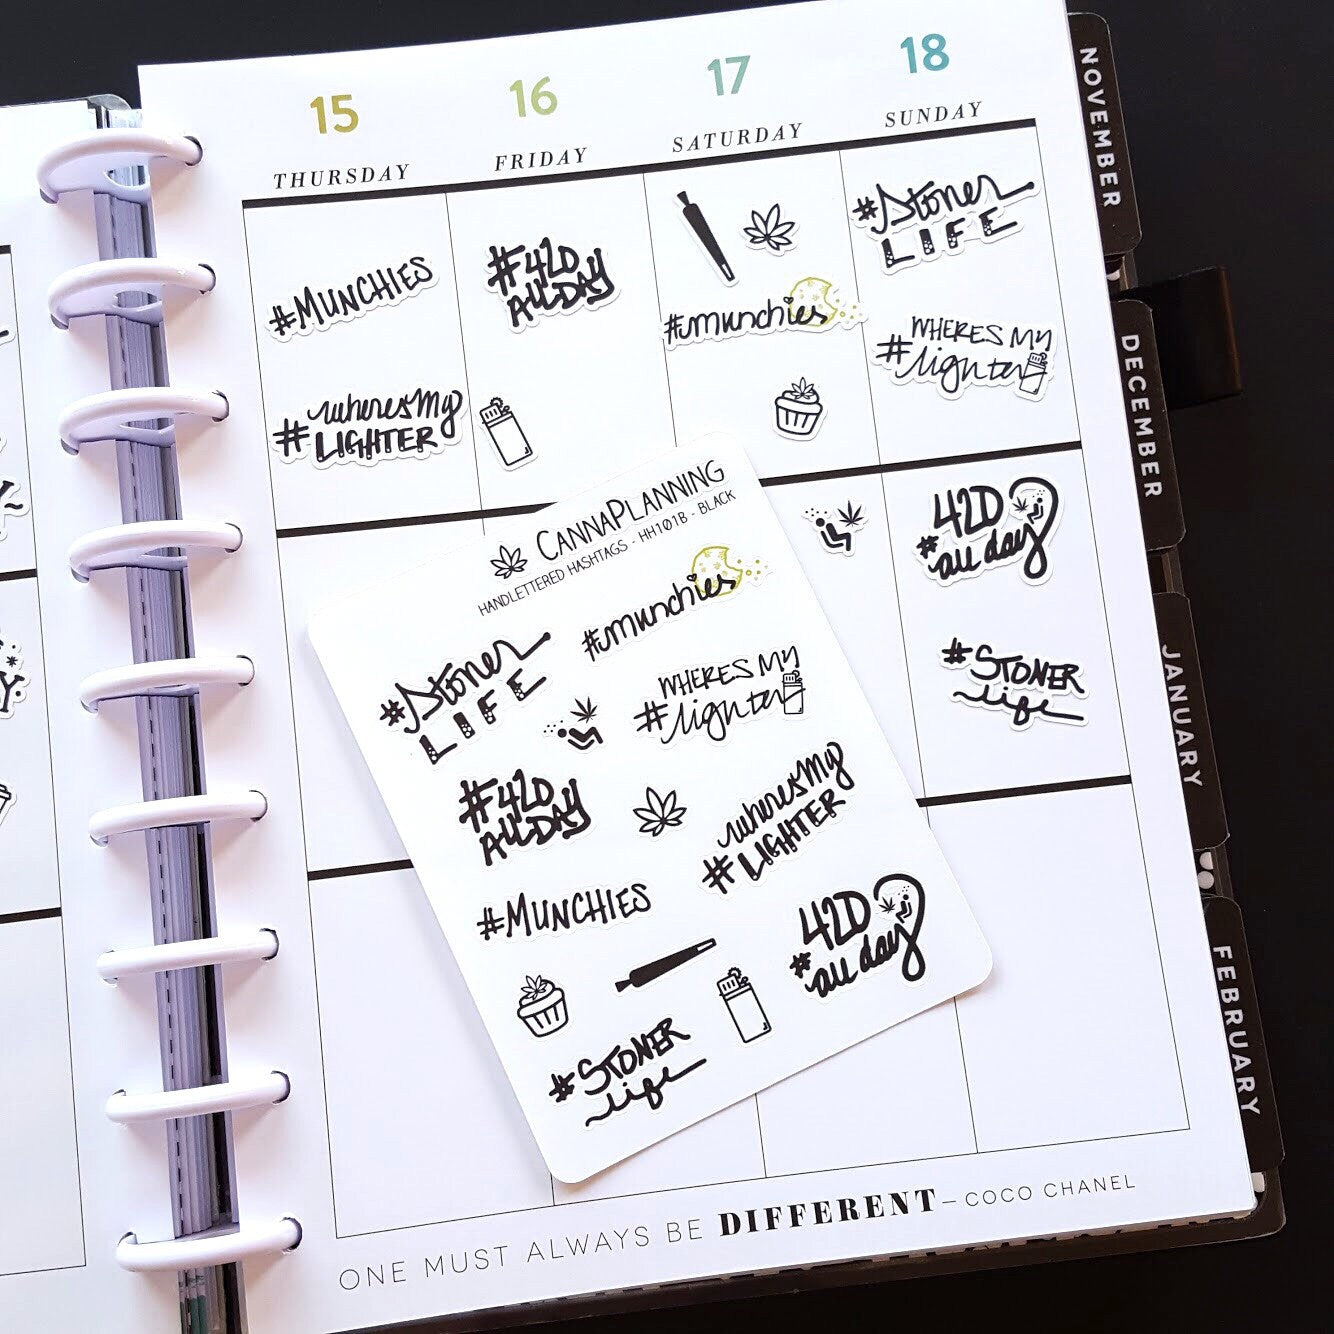 15
THURSDAY
16
FRIDAY
17
SATURDAY
18
SUNDAY
#MUNCHIES
#wheresMy
LIGHTER
#420
ALLDAY
#munchies
#Stoner
LIFE
#WHERE'S MY
lighter
420
#all day
#STONER
life
CANNAPLANNING
HANDLETTERED HASHTAGS - HH101B - BLACK
#munchies
#Stoner
LIFE
#WHERE'S MY
lighter
#420
ALLDAY
#wheresMy
LIGHTER
#MUNCHIES
420
#all day
#STONER
life
ONE MUST ALWAYS BE DIFFERENT – COCO CHANEL
NOVEMBER
DECEMBER
JANUARY
FEBRUARY